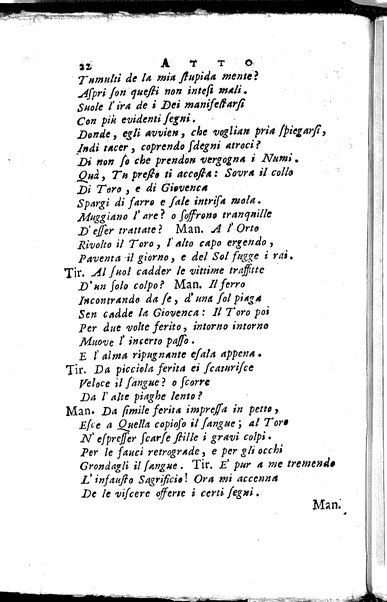 22 ATTO
Tumulti de la mia ſtupida mente?
Aſpri ſon queſti non inteſi mali.
Suole l'ira de i Dei manifeſtarſi
Con più evidenti ſegni.
Donde, egli avvien, che voglian pria ſpiegarſi,
Indi tacer, coprendo ſdegni atroci?
Di non ſo che prendon vergogna i Numi.
Quà, Tu preſto ti accoſta: Sovra il collo
Di Toro, e di Giovenca
Spargi di farro e ſale intriſa mola.
Muggiano l'are? o ſoffrono tranquille
D'eſſer trattate? Man. A l'Orto
Rivolto il Toro, l'alto capo ergendo,
Paventa il giorno, e del Sol fugge i rai.
Tir. Al ſuol cadder le vittime traffitte
D'un ſolo colpo? Man. Il ferro
Incontrando da ſe, d'una ſol piaga
Sen cadde la Giovenca: Il Toro poi
Per due volte ferito, intorno intorno
Muove l'incerto paſſo.
E l'alma ripugnante eſala appena.
Tir. Da picciola ferita ei ſcaturiſce
Veloce il ſangue? o ſcorre
Da l'alte piaghe lento?
Man. Da ſimile ferita impreſſa in petto,
Eſce a Quella copioſo il ſangue; al Toro
N'eſpreſſer ſcarſe ſtille i gravi colpi.
Per le fauci retrograde, e per gli occhi
Grondagli il ſangue. Tir. E' pur a me tremendo
L'infauſto Sagrificio! Ora mi accenna
De le viſcere offerte i certi ſegni.
Man.